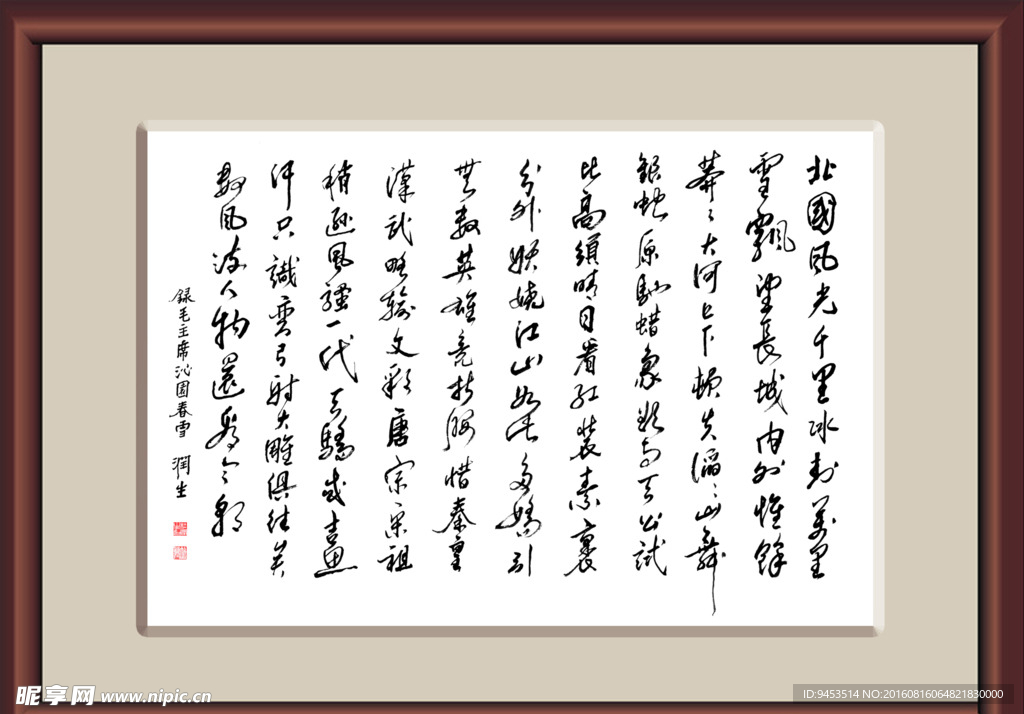 北國风光千里冰封萬里
雪飄望長城内外惟餘
莽〻大河上下頓失滔〻山舞
銀蛇原馳蜡象欲与天公試
比高須晴日看红装素裹
分外妖娆江山如此多嬌引
無數英雄竞折腰惜秦皇
漢武略输文彩唐宗宋祖
稍逊風骚一代天驕成吉思
汗只識弯弓射大雕俱往矣
数风流人物還看今朝
録毛主席沁园春雪 润生
昵享网 www.nipic.cn
ID:9453514 NO:20160816064821830000